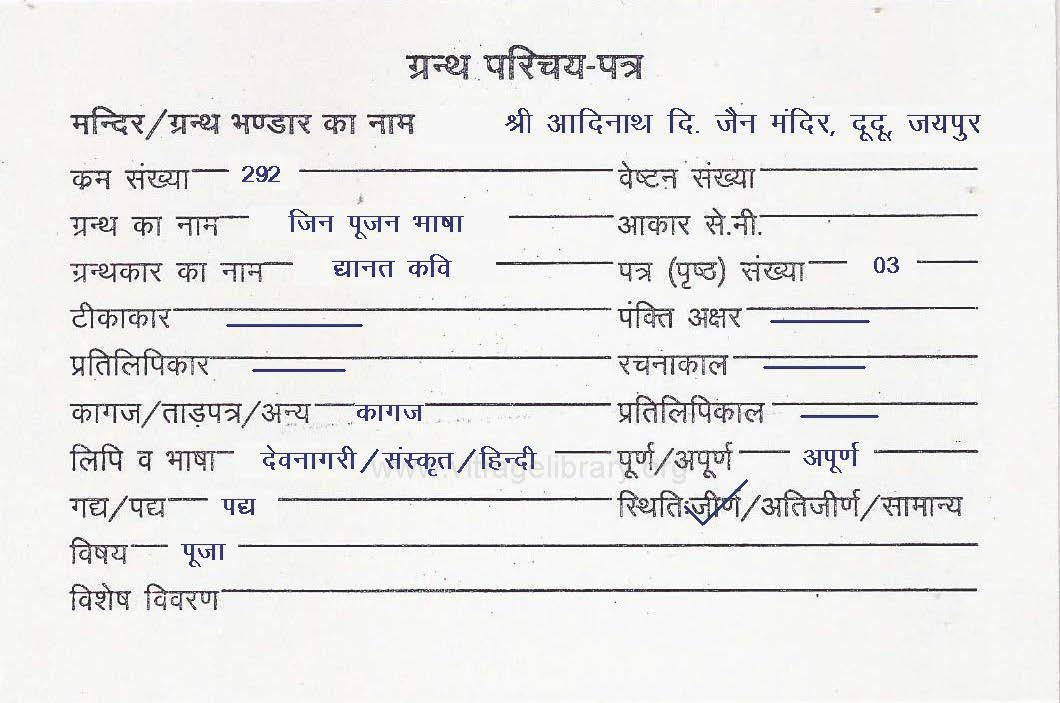 ग्रन्थ परिचय-पत्र
मन्दिर/ग्रन्थ भण्डार का नाम श्री आदिनाथ दि. जैन मंदिर, दूदू, जयपुर
कम संख्या 292 वेष्टन संख्या
ग्रन्थ का नाम जिन पूजन भाषा आकार से.मी.
ग्रन्थकार का नाम द्यानत कवि पत्र (पृष्ठ) संख्या 03
टीकाकार पंक्ति अक्षर
प्रतिलिपिकार रचनाकाल
कागज/ताड़पत्र/अन्य कागज प्रतिलिपिकाल
लिपि व भाषा देवनागरी/संस्कृत/हिन्दी पूर्ण/अपूर्ण अपूर्ण
www.vitragelibrary.org
गद्य/पद्य पद्य स्थितिःजीर्ण/अतिजीर्ण/सामान्य
विषय पूजा
विशेष विवरण